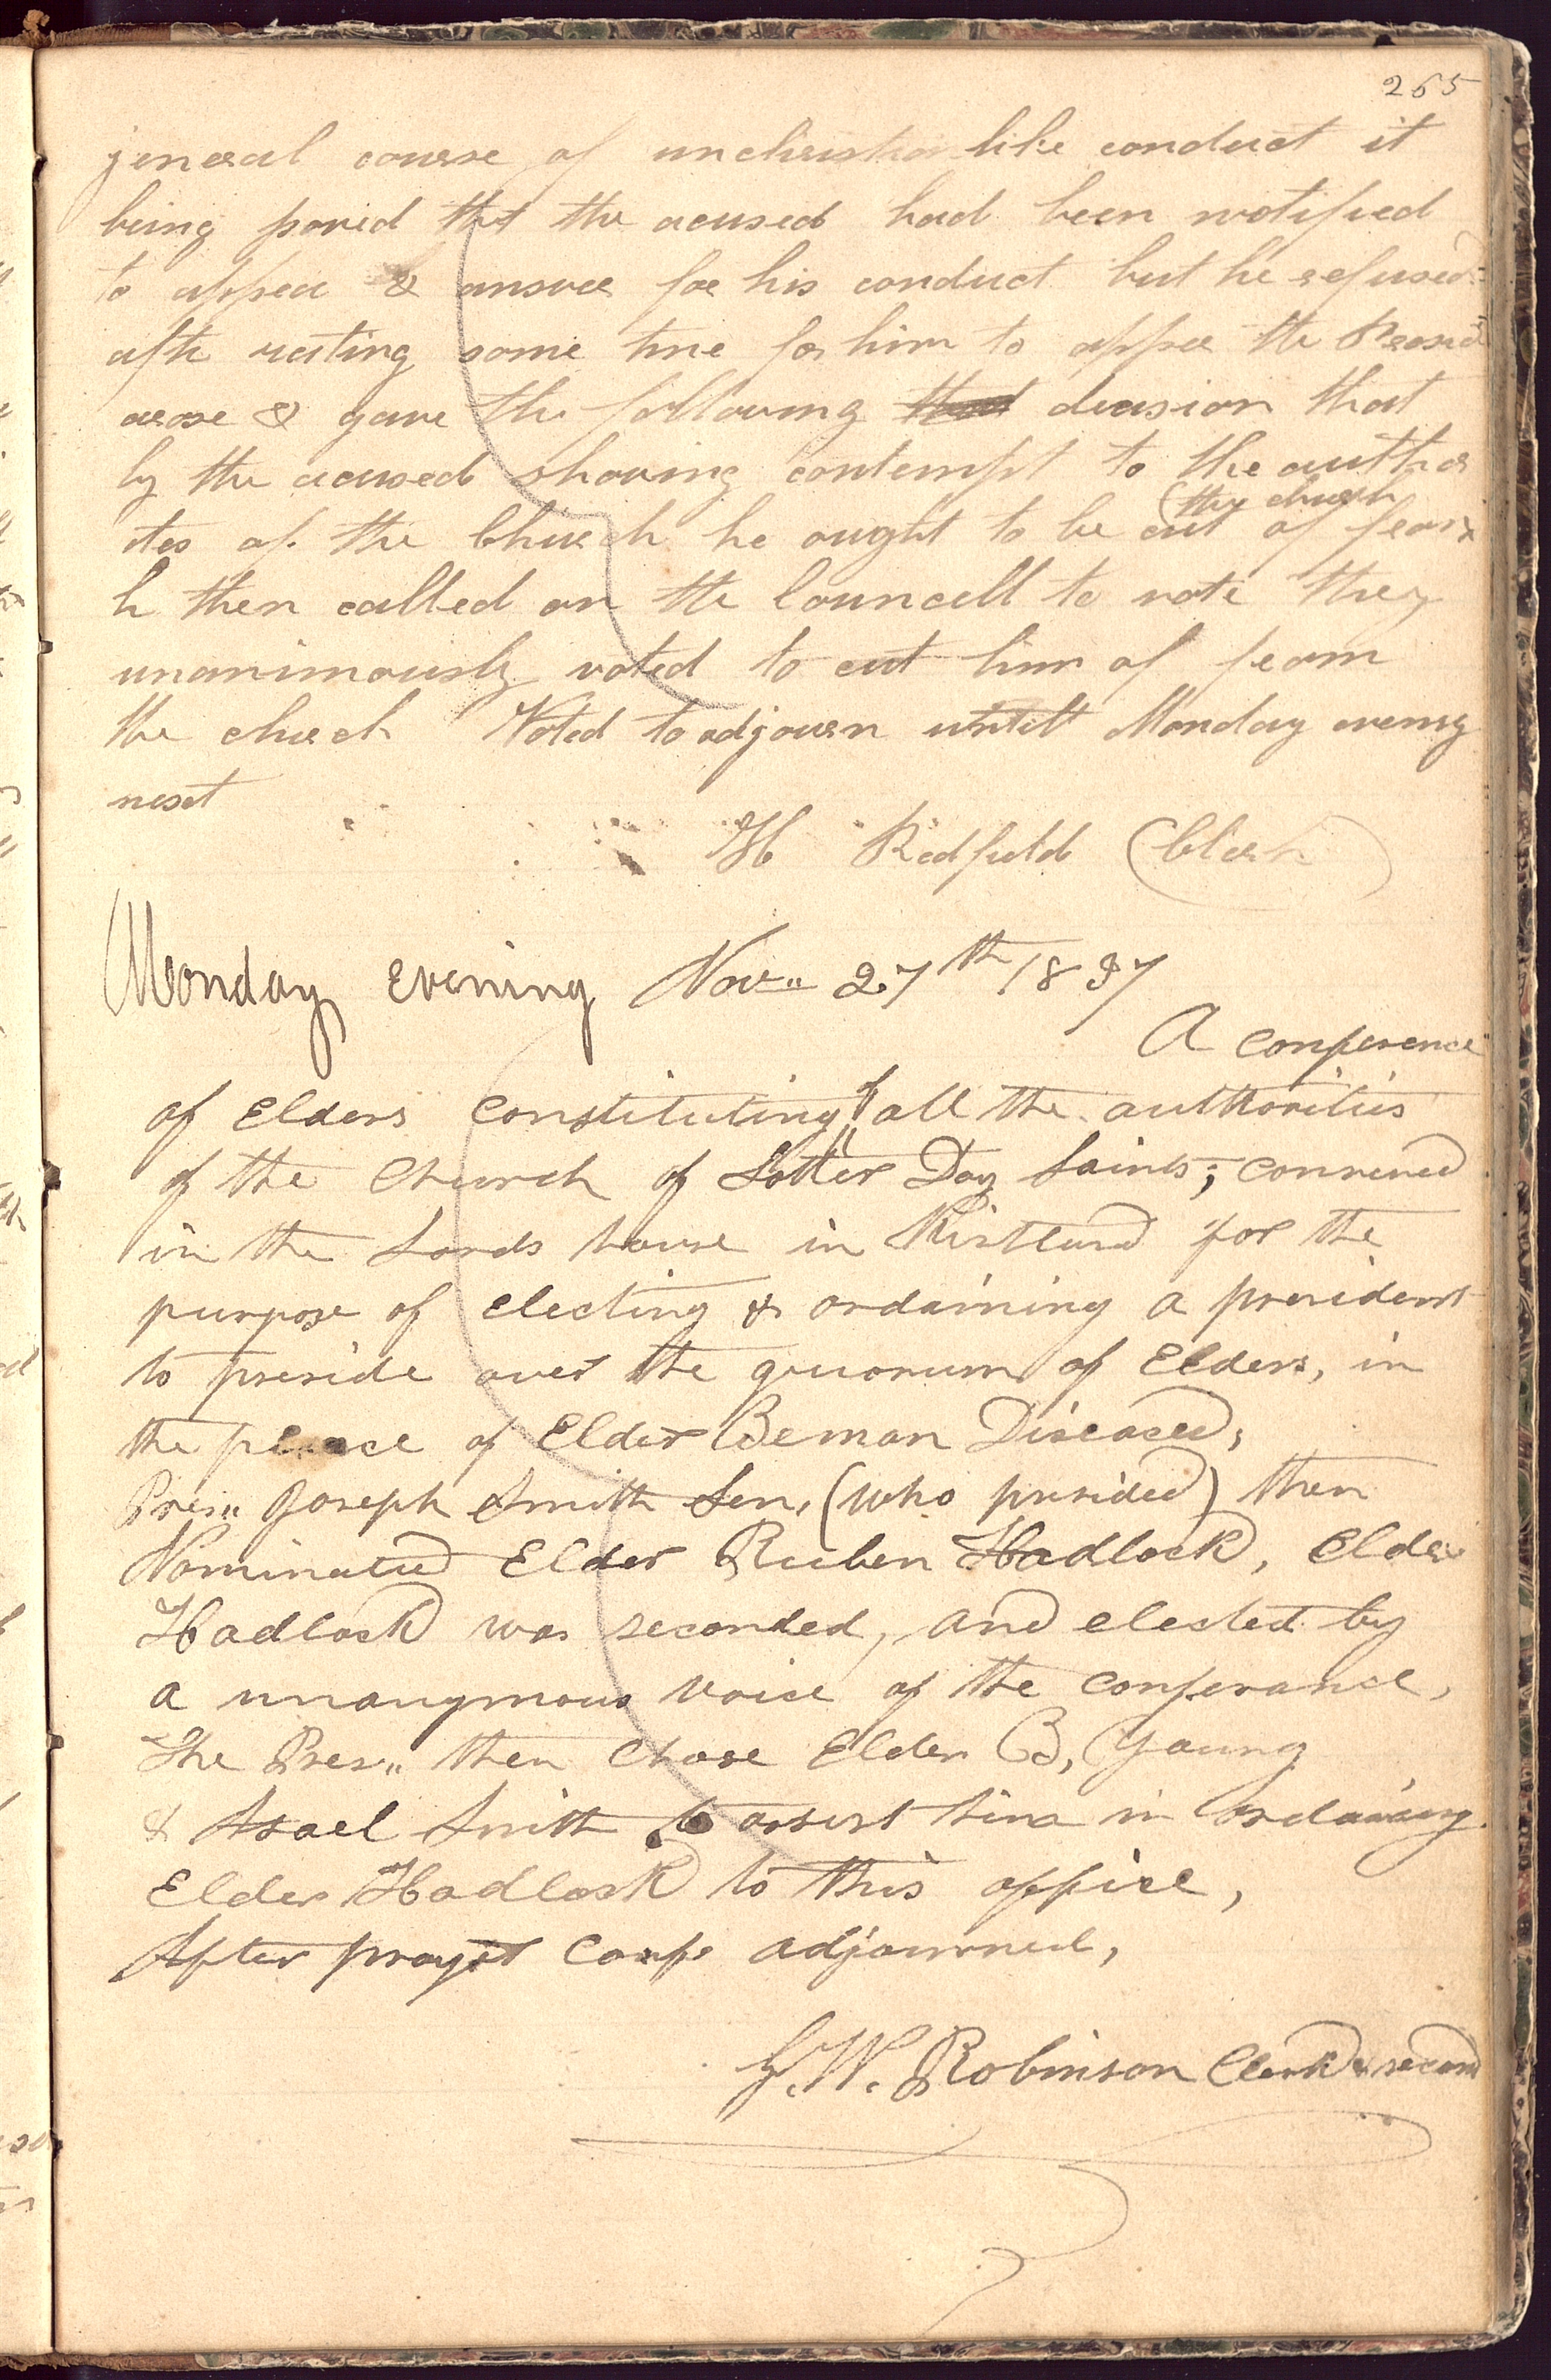 265
jeneral course of unchristian like conduct it
being provid that the acused had been notified
to apper & answer for his conduct but he refused
aftr wating some time for him to apper the
arose & gave the following that decision that
by the acused showing contempt to the author
ites of the Church he ought to be cut of from
the church
h then called on the Councell to vote they
unanimously voted to cut him of from
the church Voted to adjourn untill Monday evening
next
H Redfield Clerk
Monday evening Nov,, 27th 1837
A conference
of Elders constituting all the authorities
of the Church of Latter Day Saints; convened
in the Lords house in Kirtland for the
purpose of electing & ordaining a president
to preside over the quorum of Elders, in
the place of Elder Beman Diseased,
Pres,, Joseph Smith Sen, (who presided) then
Nominated Elder Ruben Hadlock, Elder
Hadlock was seconded, and elected by
a unanymous voice of the conferance,
The Pres,, then chose Elder B, Young
& Asael Smith to assist him in ordaining
Elder Hadlock to this office,
After prayer Conf, adjourned,
G. W. Robinson Clerk &